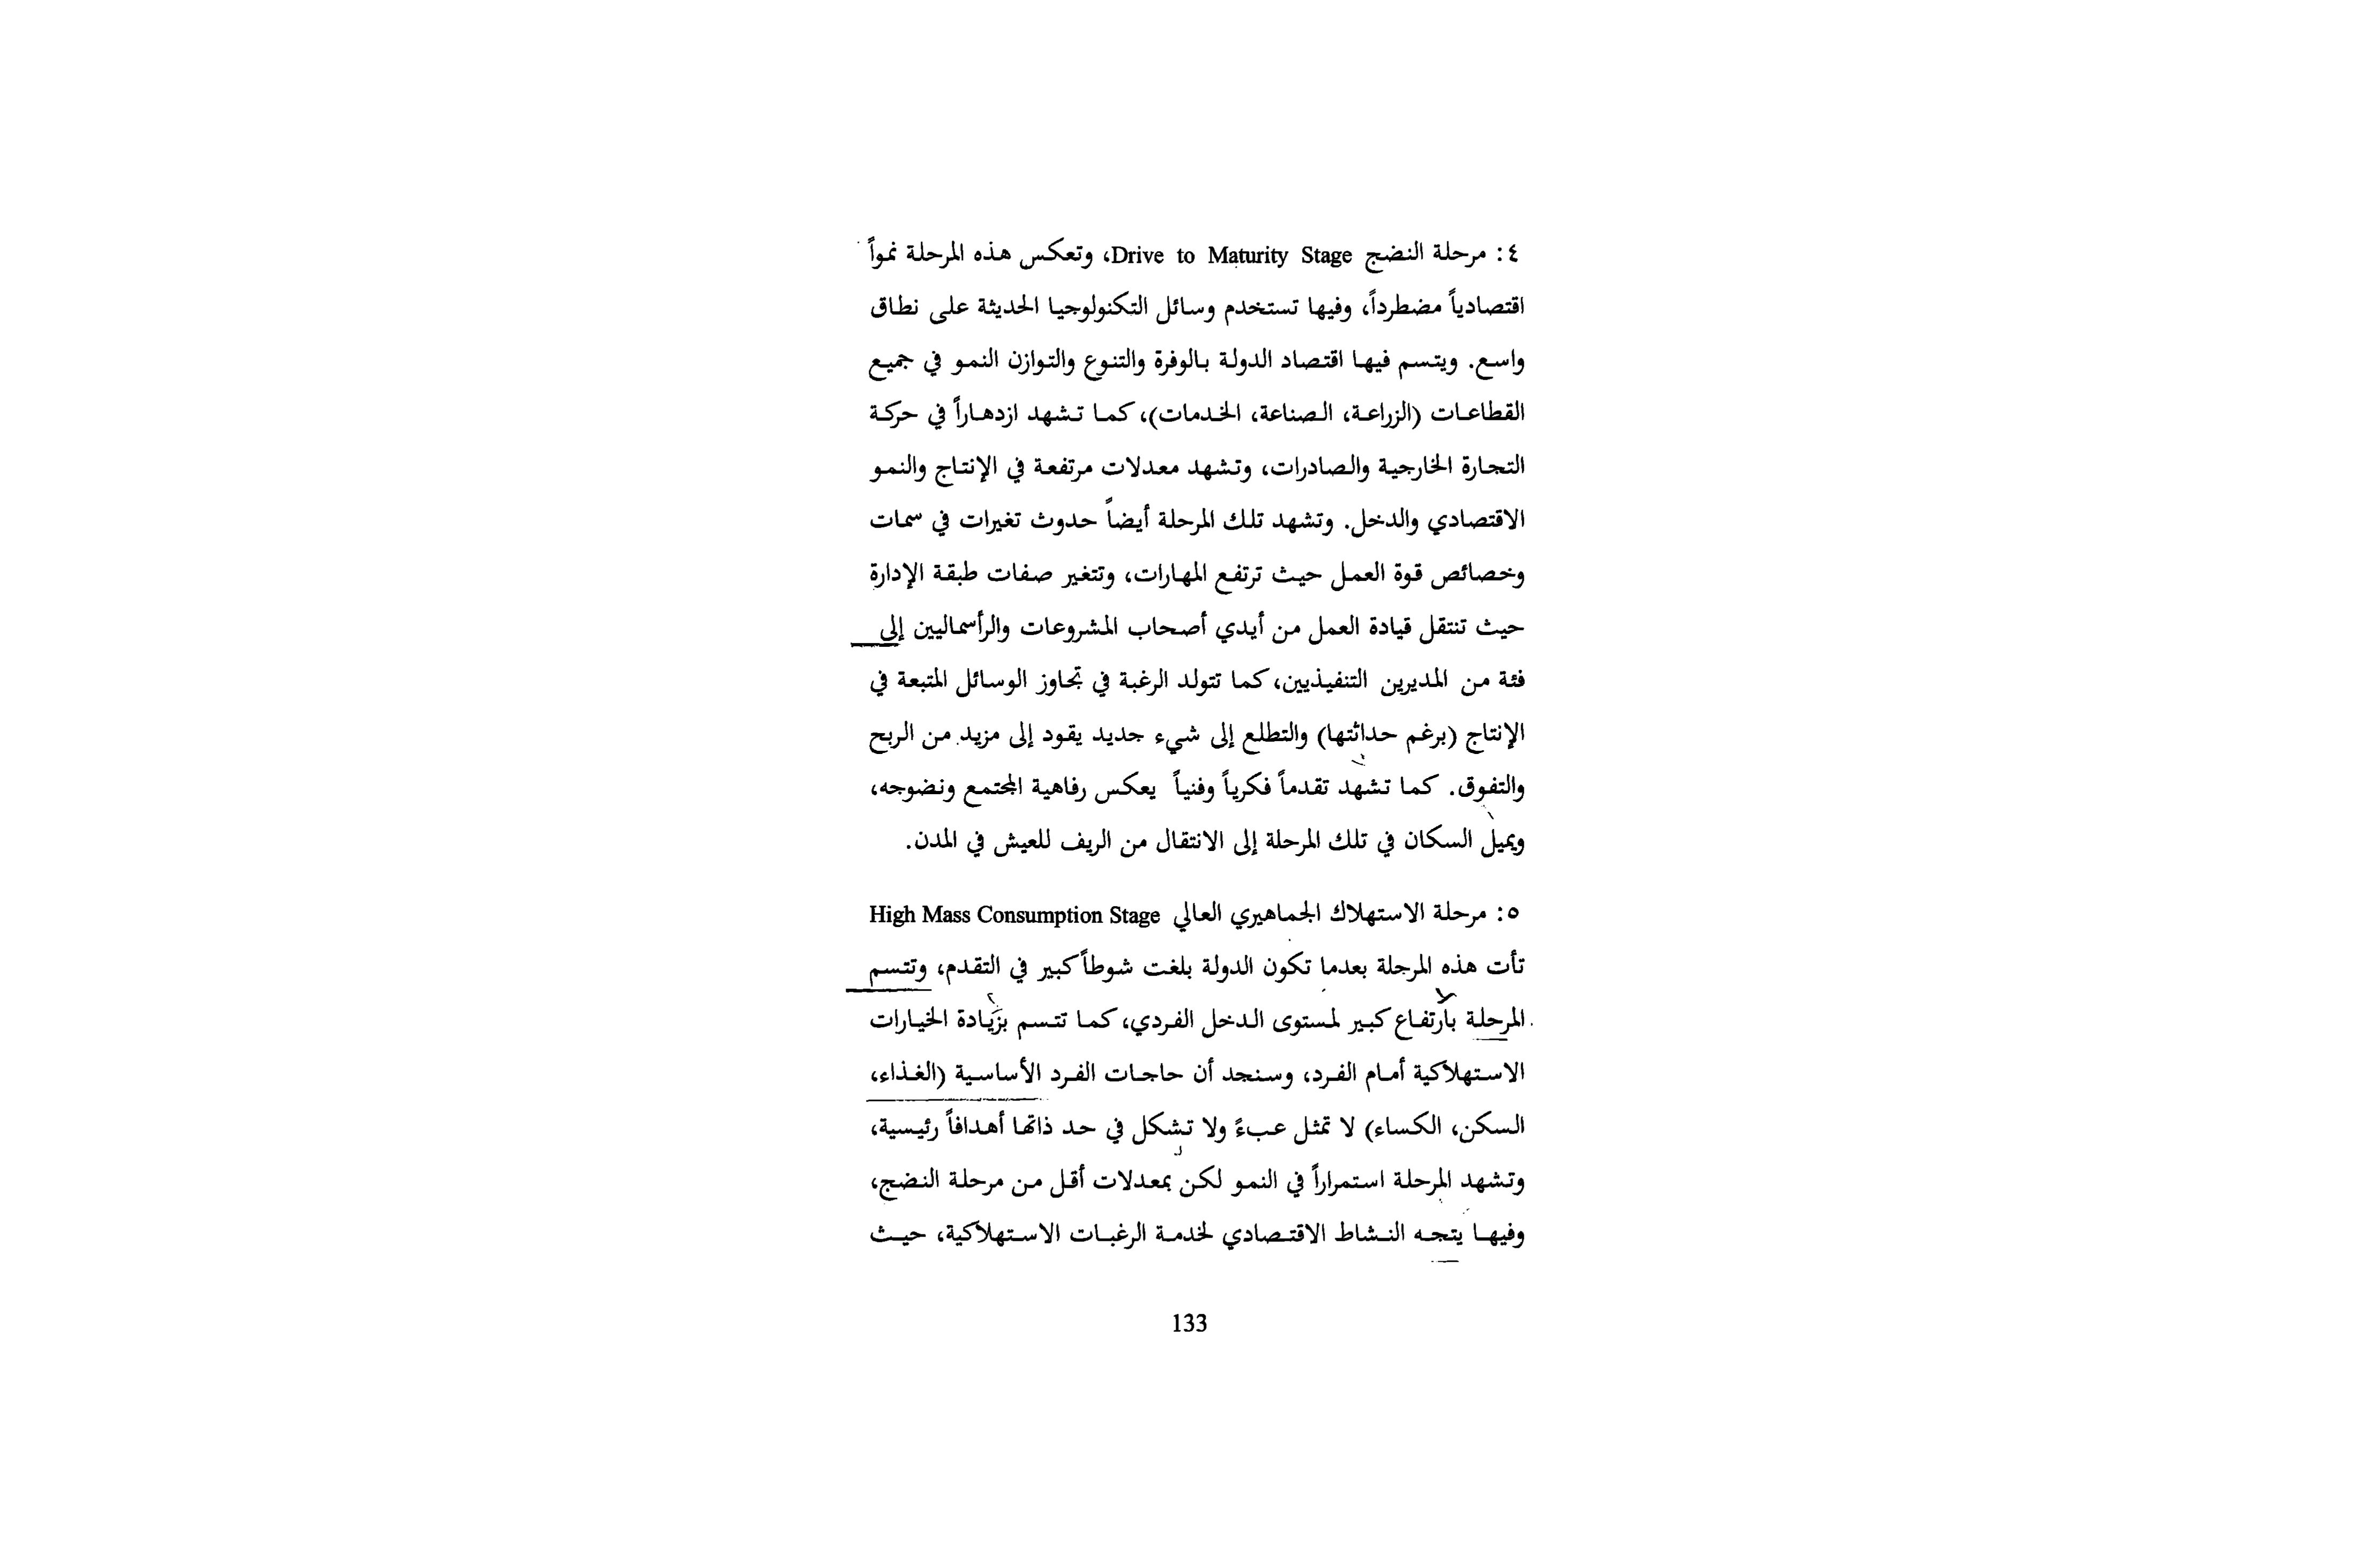 ٤: مرحلة النضج Drive to Maturity Stage، وتعكس هذه المرحلة نمواً
اقتصادياً مضطرداً، وفيها تستخدم وسائل التكنولوجيا الحديثة على نطاق
واسع. ويتسم فيها اقتصاد الدولة بالوفرة والتنوع والتوازن النمو في جميع
القطاعات (الزراعة، الصناعة، الخدمات)، كما تشهد ازدهاراً في حركة
التجارة الخارجية والصادرات، وتشهد معدلات مرتفعة في الإنتاج والنمو
الاقتصادي والدخل. وتشهد تلك المرحلة أيضاً حدوث تغيرات في سمات
وخصائص قوة العمل حيث ترتفع المهارات، وتتغير صفات طبقة الإدارة
حيث تنتقل قيادة العمل من أيدي أصحاب المشروعات والرأسماليين إلى
فئة من المديرين التنفيذيين، كما تتولد الرغبة في تجاوز الوسائل المتبعة في
الإنتاج (برغم حداثتها) والتطلع إلى شيء جديد يقود إلى مزيد من الربح
والتفوق. كما تشهد تقدماً فكرياً وفنياً يعكس رفاهية المجتمع ونضوجه،
ويميل السكان في تلك المرحلة إلى الانتقال من الريف للعيش في المدن.
٥: مرحلة الاستهلاك الجماهيري العالي High Mass Consumption Stage
تأت هذه المرحلة بعدما تكون الدولة بلغت شوطاً كبير في التقدم، وتتسم
المرحلة بارتفاع كبير لمستوى الدخل الفردي، كما تتسم بزيادة الخيارات
الاستهلاكية أمام الفرد، وسنجد أن حاجات الفرد الأساسية (الغذاء،
السكن، الكساء) لا تمثل عبءً ولا تشكل في حد ذاتها أهدافاً رئيسية،
وتشهد المرحلة استمراراً في النمو لكن بمعدلات أقل من مرحلة النضج،
وفيها يتجه النشاط الاقتصادي لخدمة الرغبات الاستهلاكية، حيث
133